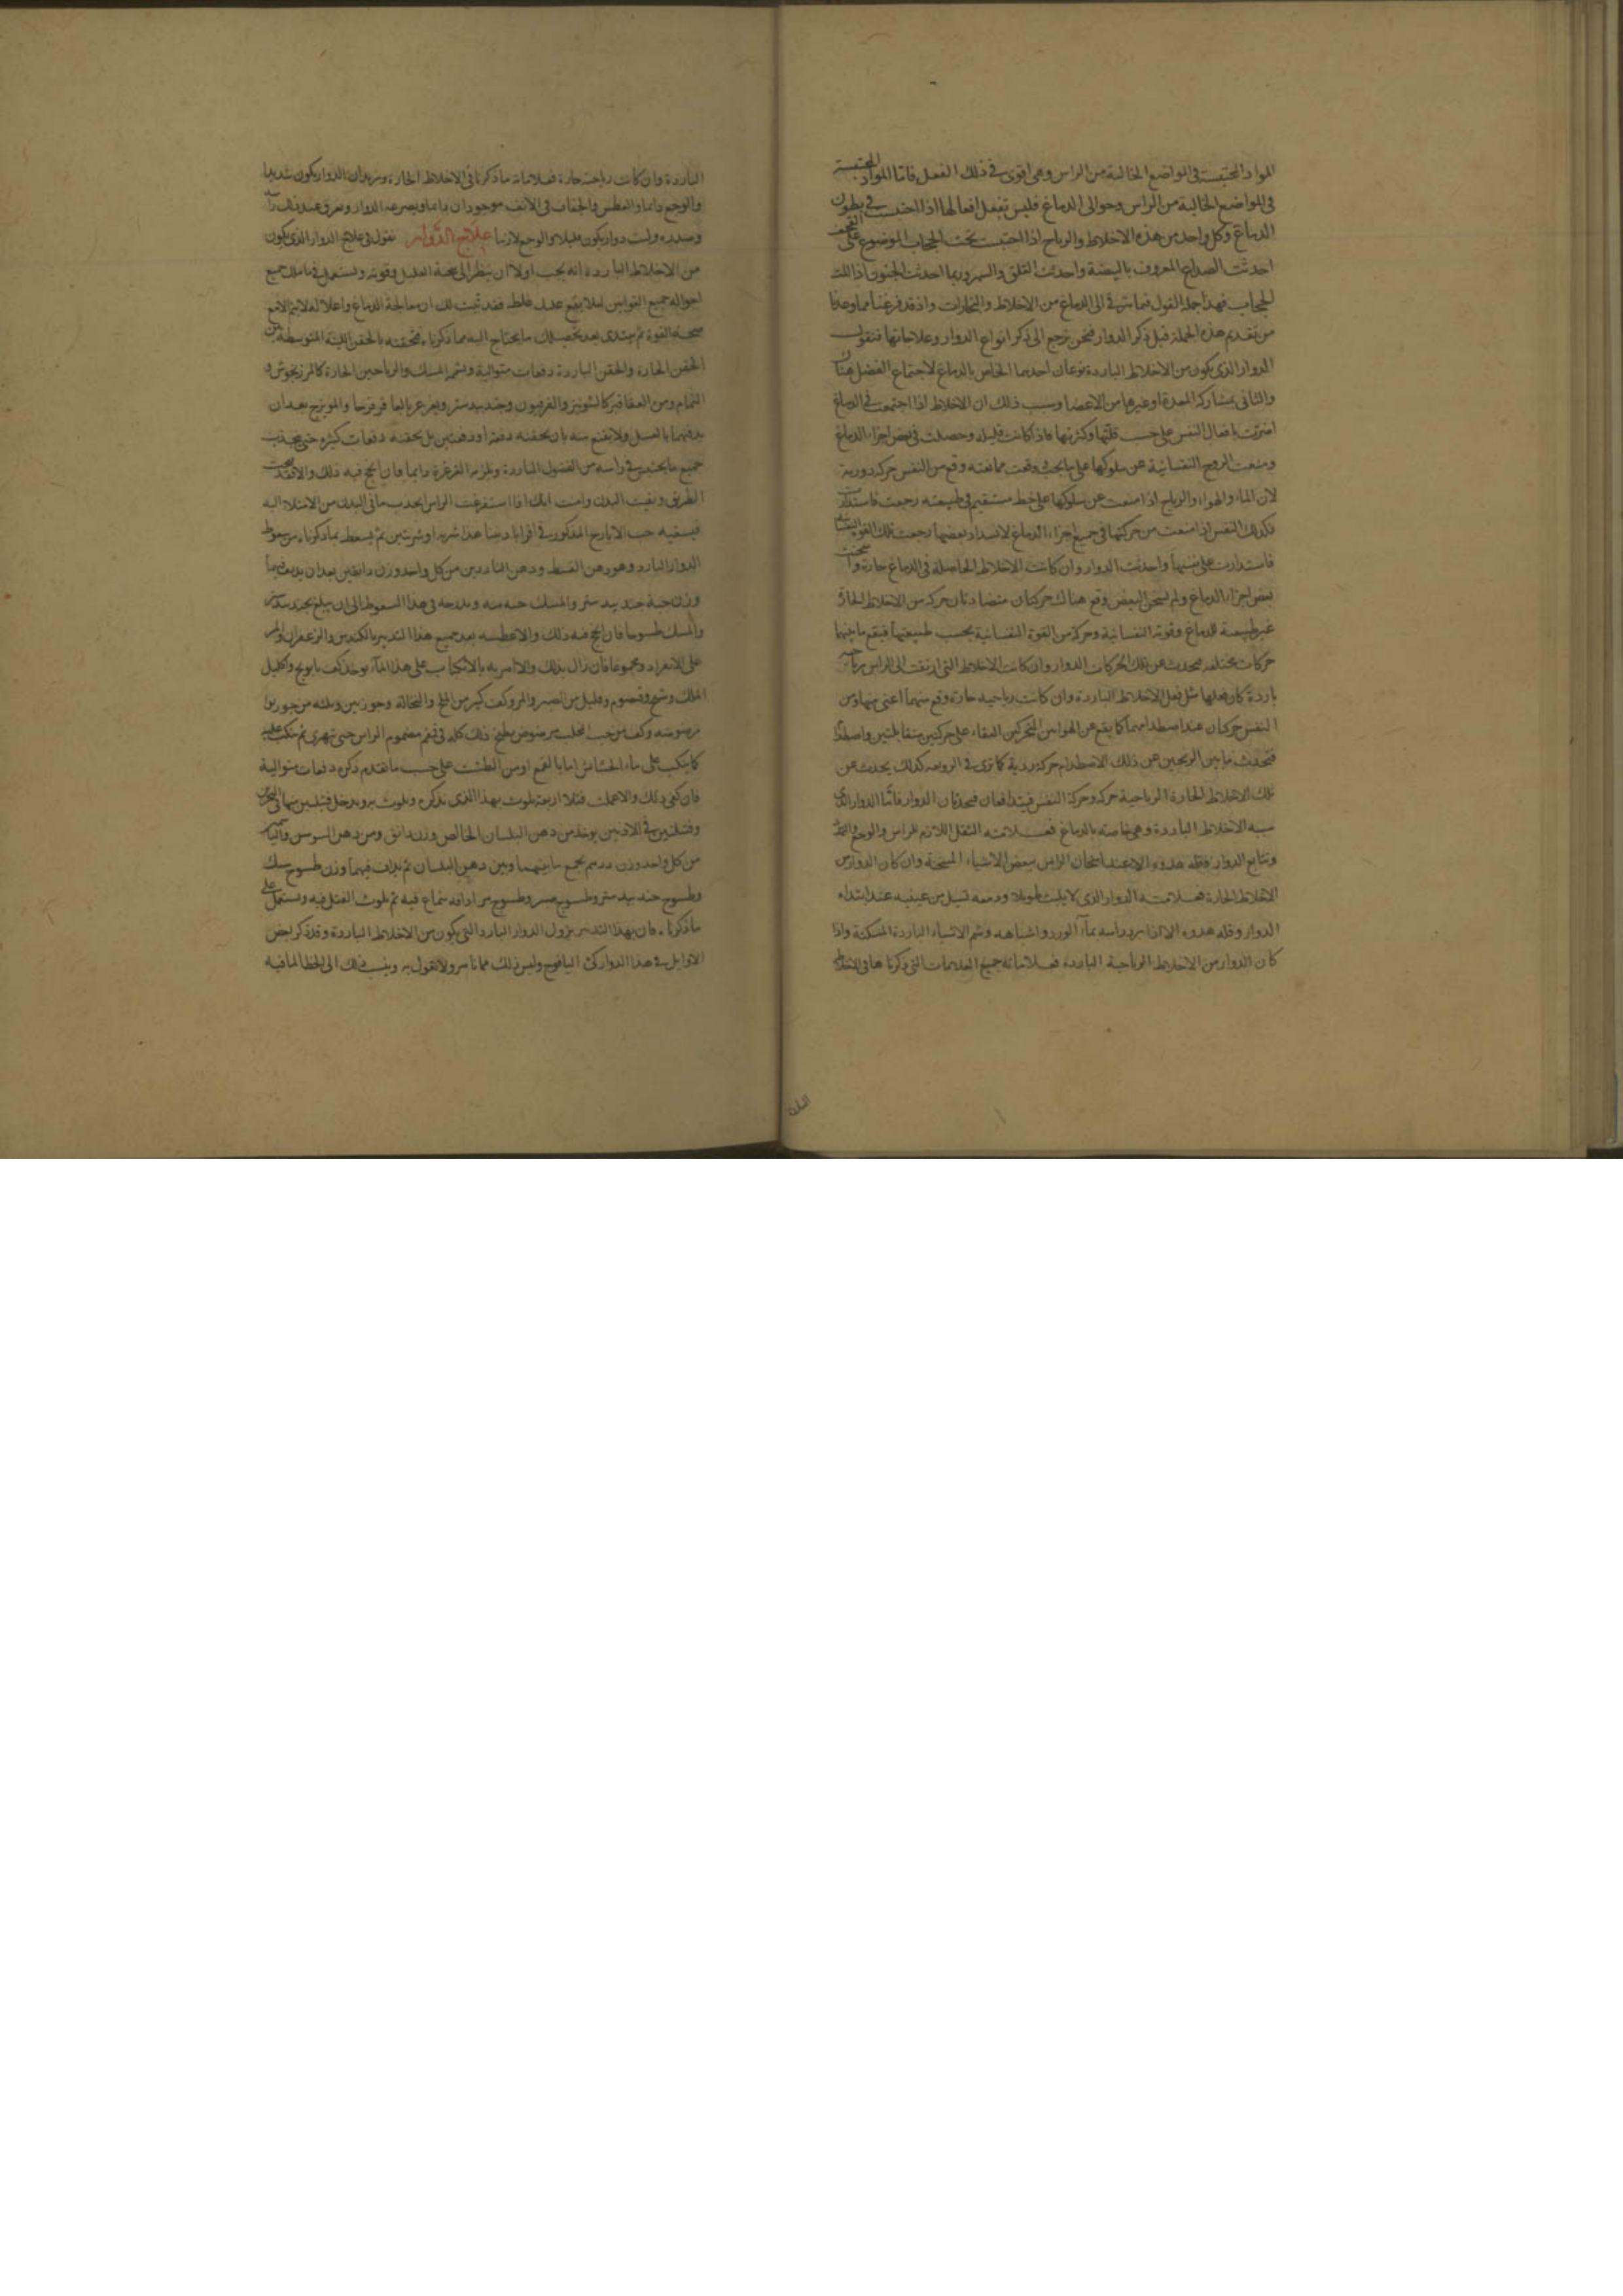 المواد المحتبسة في المواضع الخالية من الراس وهي اقوى في ذلك الفعل فاما المواد المحتبسة
في المواضع الخالية من الراس وحوالى الدماغ فليس تفعل افعالها اذا احتبست في بطون
الدماغ وكل واحد من هذه الاخلاط والرياح اذا احتبست تحت الحجاب الموضوع على القحف
احدثت الصداع المعروف بالبيضة واحدثت القلق والسهر وربما احدثت الجنون اذا
الحجاب فهذا جملة القول فيما يترقى الى الدماغ من الاخلاط والبخارات واذ قد فرغنا مما وعدنا
من تقديم هذه الجملة قبل ذكر الدوار فنحن نرجع الى ذكر انواع الدوار وعلاجاتها فنقول
الدوار الذي يكون من الاخلاط الباردة نوعان احدهما الخاص بالدماغ لاجتماع الفضل هناك
والثاني بمشاركة المعدة او غيرها من الاعضا وسبب ذلك ان الاخلاط اذا اجتمعت في الدماغ
اضرت بافعال النفس على حسب قلتها وكثرتها فاذا كانت قليلة وحصلت في بعض اجزاء الدماغ
ومنعت الروح النفسانية عن سلوكها على ما يجب وقعت ممانعته وقع من النفس حركة دورية
لان الماء والهواء والرياح اذا منعت عن سلوكها على خط مستقيم في طبيعته رجعت فاستدارت
فكذلك النفس اذا منعت من حركتها في جميع اجزاء الدماغ لانسداد بعضها رجعت تلك القوة النفسانية
فاستدارت على نفسها واحدثت الدوار وان كانت الاخلاط الحاصلة في الدماغ حارة واسخنت
بعض اجزاء الدماغ ولم تسخن البعض وقع هناك حركتان متضادتان حركة من الاخلاط الحارة
غير طبيعية للدماغ وقوته النفسانية وحركة من القوة النفسانية بحسب طبيعتها فيقع ما بينهما
حركات مختلفة فيحدث عن تلك الحركات الدوار وان كانت الاخلاط التي ارتقت الى الراس رياحية
باردة كان فعلها مثل فعل الاخلاط الباردة وان كانت رياحية حارة وقع منهما اعني منها ومن
النفس حركتان عند اصطدامهما كما يقع عن الهوائين المتحركين التقاء على حركتين متقابلتين واصطدما
فتحدث ما بين الريحين عن ذلك الاصطدام حركة ردية كما ترى في الزوبعة كذلك يحدث عن
تلك الاخلاط الحارة الرياحية حركة وحركة النفس فيتدافعان فيحدثان الدوار فاما الدوار الذي
سببه الاخلاط الباردة وهي خاصة بالدماغ فعلامته الثقل اللازم للراس والوجع
وتتابع الدوار وقلة هدوه الا عند اسخان الراس ببعض الاشياء المسخنة وان كان الدوار من
الاخلاط الحارة فعلامته الدوار الذي لا يلبث طويلا ودمعة تسيل من عينيه عند ابتداء
الدوار وقلة هدوه الا اذا برد راسه بماء الورد واشباهه وشم الاشياء الباردة المسكنة واذا
كان الدوار من الاخلاط الرياحية الباردة فعلاماته جميع العلامات التي ذكرناها في الاخلاط
الباردة
الباردة وان كانت رياحية حارة فعلاماته ما ذكرنا في الاخلاط الحارة ويزيد ان الدوار يكون شديدا
والوجع دايما والعطس والجفاف في الانف موجودان دايما ويصرعه الدوار ويعرق عند ذلك راسه
وصدره وليت دوار يكون مليلا والوجع لازما علاج الدوار نقول في علاج الدوار الذي يكون
من الاخلاط الباردة انه يجب اولا ان ينظر الى صحة العليل وقوته ويستعمل في تامل جميع
احواله جميع القوانين ليلا يقع عليك غلط فقد ثبت لك ان معالجة الدماغ واعلاله لا يتم الا مع
صحة القوة ثم يبتدى بعد تحصيلك ما يحتاج اليه مما ذكرناه فتحقنه بالحقن اللينة المتوسطة بين
الحقن الحارة والحقن الباردة دفعات متوالية وتشمه المسك والرياحين الحارة كالمرزنجوش و
النمام ومن العقاقير كالشونيز والفربيون وجندبيدستر ويغرغر بالعاقرقرحا والمويزج بعد ان
يدقهما بالعسل ولا يقنع منه بان يحقنه دفعة او دفعتين بل يحقنه دفعات كثيرة حتى يجذب
جميع ما يحتبس في راسه من الفضول الباردة ويلزم الغرغرة دايما فان نجع فيه ذلك والا
الطريق ونقيت البدن وامنت انك اذا استفرغت الراس انجذب ما في البدن من الامتلاء اليه
فيسقيه حب الايارج المذكور في اقراباديننا هذا شربة او شربتين ثم يسعط بما ذكرناه من سعوط
الدوار البارد وهو دهن القسط ودهن الناردين من كل واحد وزن دانقين بعد ان يديف فيهما
وزن حبة جندبيدستر والمسك حبة منه ويدرجه في هذا السعوط الى ان يبلغ بجندبيدستر
والمسك طسوجا فان نجع فيه ذلك والا عطسه بعد جميع هذا التدبير بالكندس والزعفران والمر
على الانفراد ومجموعا فان زال بذلك والا امر به بالانكباب على هذا الماء يوخذ كف بابونج واكليل
الملك وشيح وقيصوم وقليل من الصبر والمر وكف كبير من الملح والنخالة وجوزتين وثلثه من جوز بوا
مرضوضه وكف من حب المحلب مرضوض يطبخ ذلك كله في قمقم مضموم الراس حتى يتهرى ثم ينكب عليه
كما ينكب على ماء الحشائش اما بالقمع او من الطشت على حسب ما تقدم ذكره دفعات متوالية
فان كفى ذلك والا عملت فتلا اربعة يلوث بهذا الذي نذكره ويلوث به ويدخل فتيلتين منها في المنخرين
وفتيلتين في الاذنين يوخذ من دهن البلسان الخالص وزن دانق ومن دهن السوسن والياسمين
من كل واحد وزن درهم يجمع ما بينهما وبين دهن البلسان ثم يداف فيهما وزن طسوج مسك
وطسوج جندبيدستر وطسوج صبر وطسوج مر ادافه ثم تلوث الفتل فيه ويستعمل على
ما ذكرناه فان بهذا التدبير يزول الدوار البارد التي يكون من الاخلاط الباردة وقد ذكر بعض
الاوايل في هذا الدوار كي اليافوخ وليس ذلك مما نامر ولا نقول به وينسب ذلك الى الخطا لما فيه